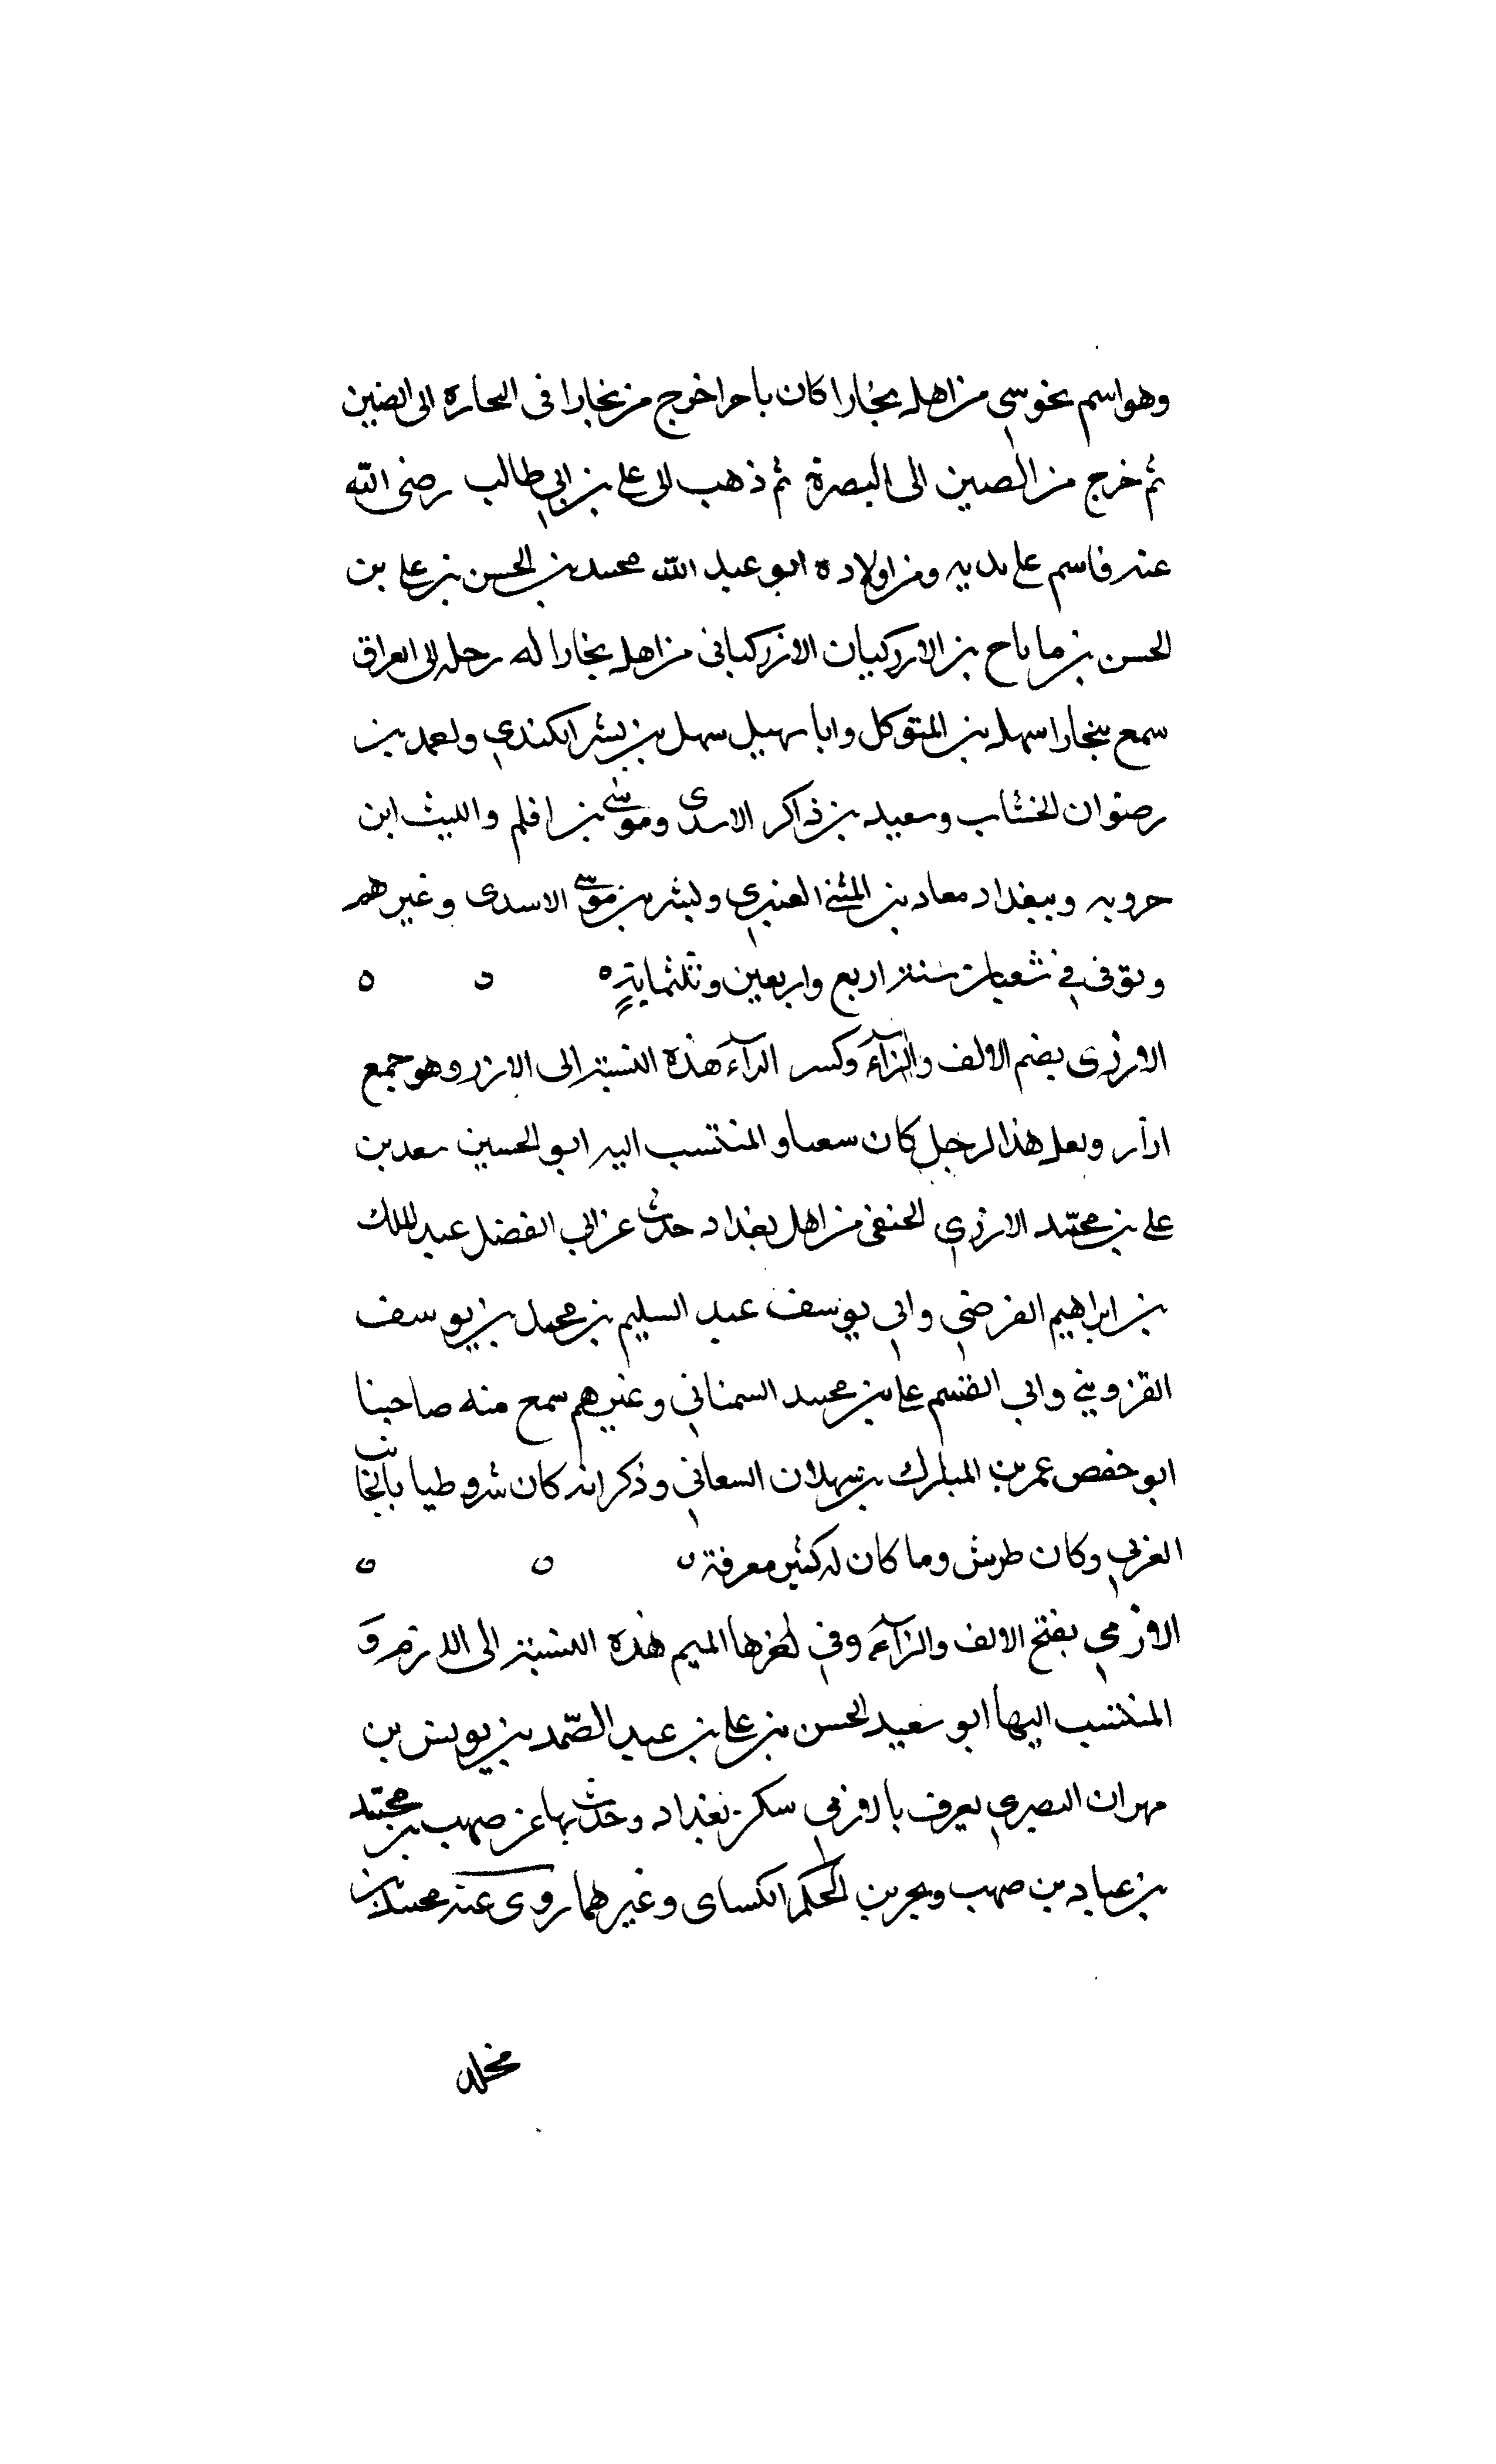 وهو اسم مجوسي من اهل بخارا كان باحرا خرج من بخارا فى التجارة الى الصين
ثم خرج من الصين الى البصرة ثم ذهب الى على بن ابي طالب رضى الله
عنه فاسلم على يديه ومن اولاده ابو عبد الله محمد بن الحسن بن على بن
الحسن بن ماباح بن الازركيان الازركيانى من اهل بخارا له رحله الى العراق
سمع ببخارا سهل بن المتوكل وابا سهيل سهل بن بشر الكندي ومحمد بن
رضوان الخشاب وسعيد بن ذاكر الاسدى وموسى بن افلح والليث ابن
حرويه وببغداد معاد بن المثنى العنبري وبشر بن موسى الاسدى وغيرهم
وتوفى في شعبان سنة اربع واربعين وثلثماية
الازرى بضم الالف والزآء وكسر الرآء هذه النسبة الى الازر وهو جمع
ازار ولعل هذا الرجل كان سعها والمنتسب اليه ابو الحسين سعد بن
على بن محمد الازري الحنفى من اهل بغداد حدث عن ابي الفضل عبد الملك
بن ابراهيم الفرضي وابي يوسف عبد السليم بن محمد بن يوسف
القزويني وابي القسم على بن محمد السمناني وغيرهم سمع منه صاحبنا
ابو حفص عمر بن المبارك بن سهلان السعاني وذكر انه كان شروطيا بالجانب
الغربي وكان طرش وما كان له كثير معرفة
الازمي بفتح الالف والزآء وفي اخرها الميم هذه النسبة الى الازم و
المنتسب اليها ابو سعيد الحسن بن على بن عبد الصمد بن يونس بن
مهران البصري يعرف بالازمي سكن بغداد وحدث بها عن صهيب بن محمد
بن عباد بن صهيب وبحر بن الحكم الكساى وغيرهما روى عنه محمد بن
مخلد